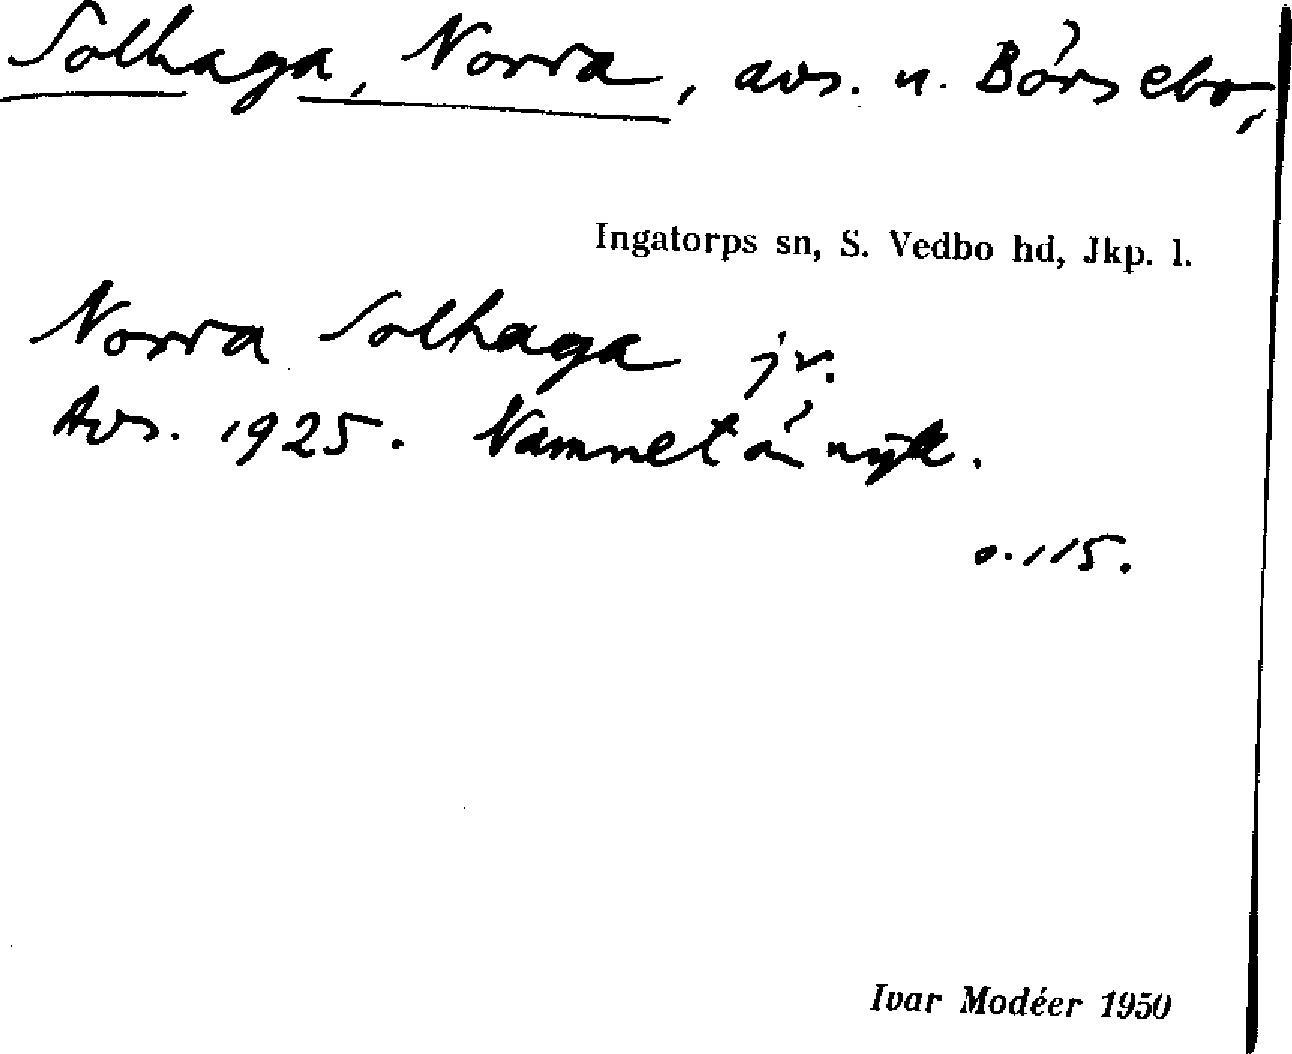 Solhaga, Norra, avs. u. Börsebo,
Ingatorps sn, S. Vedbo hd, Jkp. l.
Norra Solhaga jr.
Avs. 1925. Namnet är nytt.
o. 115.
Ivar Modéer 1950